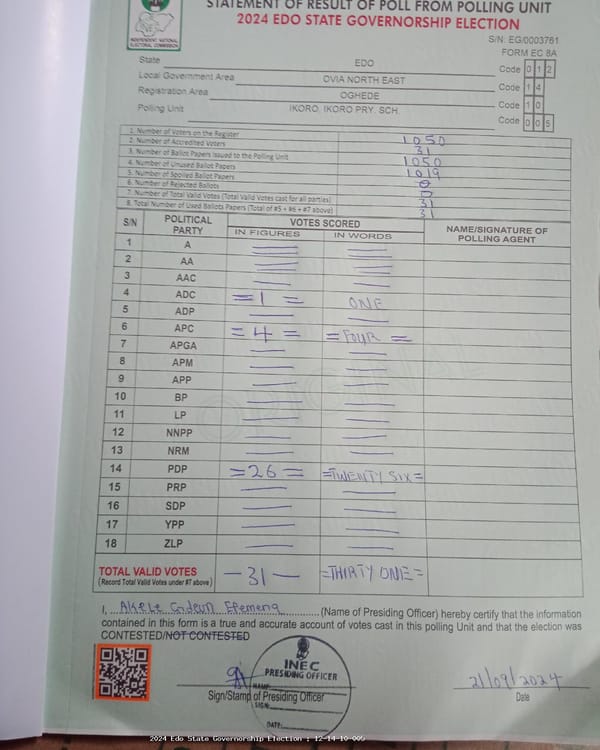 STATEMENT OF RESULT OF POLL FROM POLLING UNIT
2024 EDO STATE GOVERNORSHIP ELECTION
INDEPENDENT NATIONAL ELECTORAL COMMISSION
S/N: EG/0003761
FORM EC 8A
State EDO Code 0 1 2
Local Government Area OVIA NORTH EAST Code 1 4
Registration Area OGHEDE Code 1 0
Polling Unit IKORO, IKORO PRY. SCH. Code 0 0 5
1. Number of Voters on the Register 1050
2. Number of Accredited Voters 31
3. Number of Ballot Papers Issued to the Polling Unit 1050
4. Number of Unused Ballot Papers 1019
5. Number of Spoiled Ballot Papers 0
6. Number of Rejected Ballots 0
7. Number of Total Valid Votes (Total Valid Votes cast for all parties) 31
8. Total Number of Used Ballots Papers (Total of #5 + #6 + #7 above) 31
S/N POLITICAL PARTY VOTES SCORED NAME/SIGNATURE OF POLLING AGENT
IN FIGURES IN WORDS
1 A
2 AA
3 AAC
4 ADC =1= ONE
5 ADP
6 APC =4= =FOUR=
7 APGA
8 APM
9 APP
10 BP
11 LP
12 NNPP
13 NRM
14 PDP =26= =TWENTY SIX=
15 PRP
16 SDP
17 YPP
18 ZLP
TOTAL VALID VOTES -31- =THIRTY ONE=
(Record Total Valid Votes under #7 above)
I, Akele Gideon Efemena (Name of Presiding Officer) hereby certify that the information
contained in this form is a true and accurate account of votes cast in this polling Unit and that the election was
CONTESTED/NOT CONTESTED
INEC
PRESIDING OFFICER
NAME:
SIGN:
DATE:
Sign/Stamp of Presiding Officer
21/09/2024
Date
2024 Edo State Governorship Election : 12-14-10-005